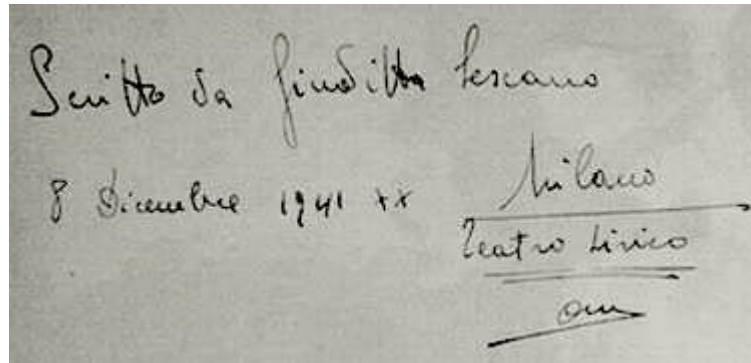 Scritto da Giuditta Lescano
8 Dicembre 1941 XX Milano
Teatro Lirico